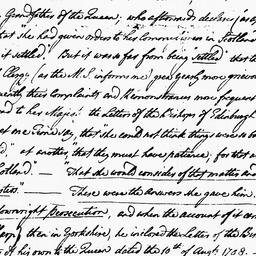 Grandfather of the Queen; who afterwards declared, as of
that "she had given orders to her Commissioners in Scotland
it settled." But it was so far from being settled" that the
Clergy (as the M.S. informs me) year yearly more grievous
their Complaints and Remonstrances more frequent
to her Majesty. the Letters of the Bishops of Edinburgh
at one Time say, that she could not think things would be
at another, "that they must have patience; for that
Scotland." — That she would consider of that matter
These were the Answers she gave him.
Downright Persecution, and when the account of it came
Sharp, then in Yorkshire, he inclosed the Letters of the Bishop
of his own to the Queen dated the 10th of Augt. 1708.